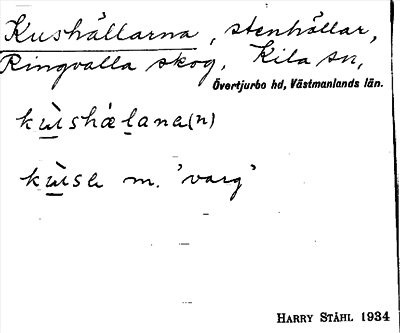 Kushällarna, stenhällar,
Ringvalla skog, Kila sn,
Övertjurbo hd, Västmanlands län.
kùshǽlana(n)
kùse m. 'varg'
HARRY STÅHL 1934